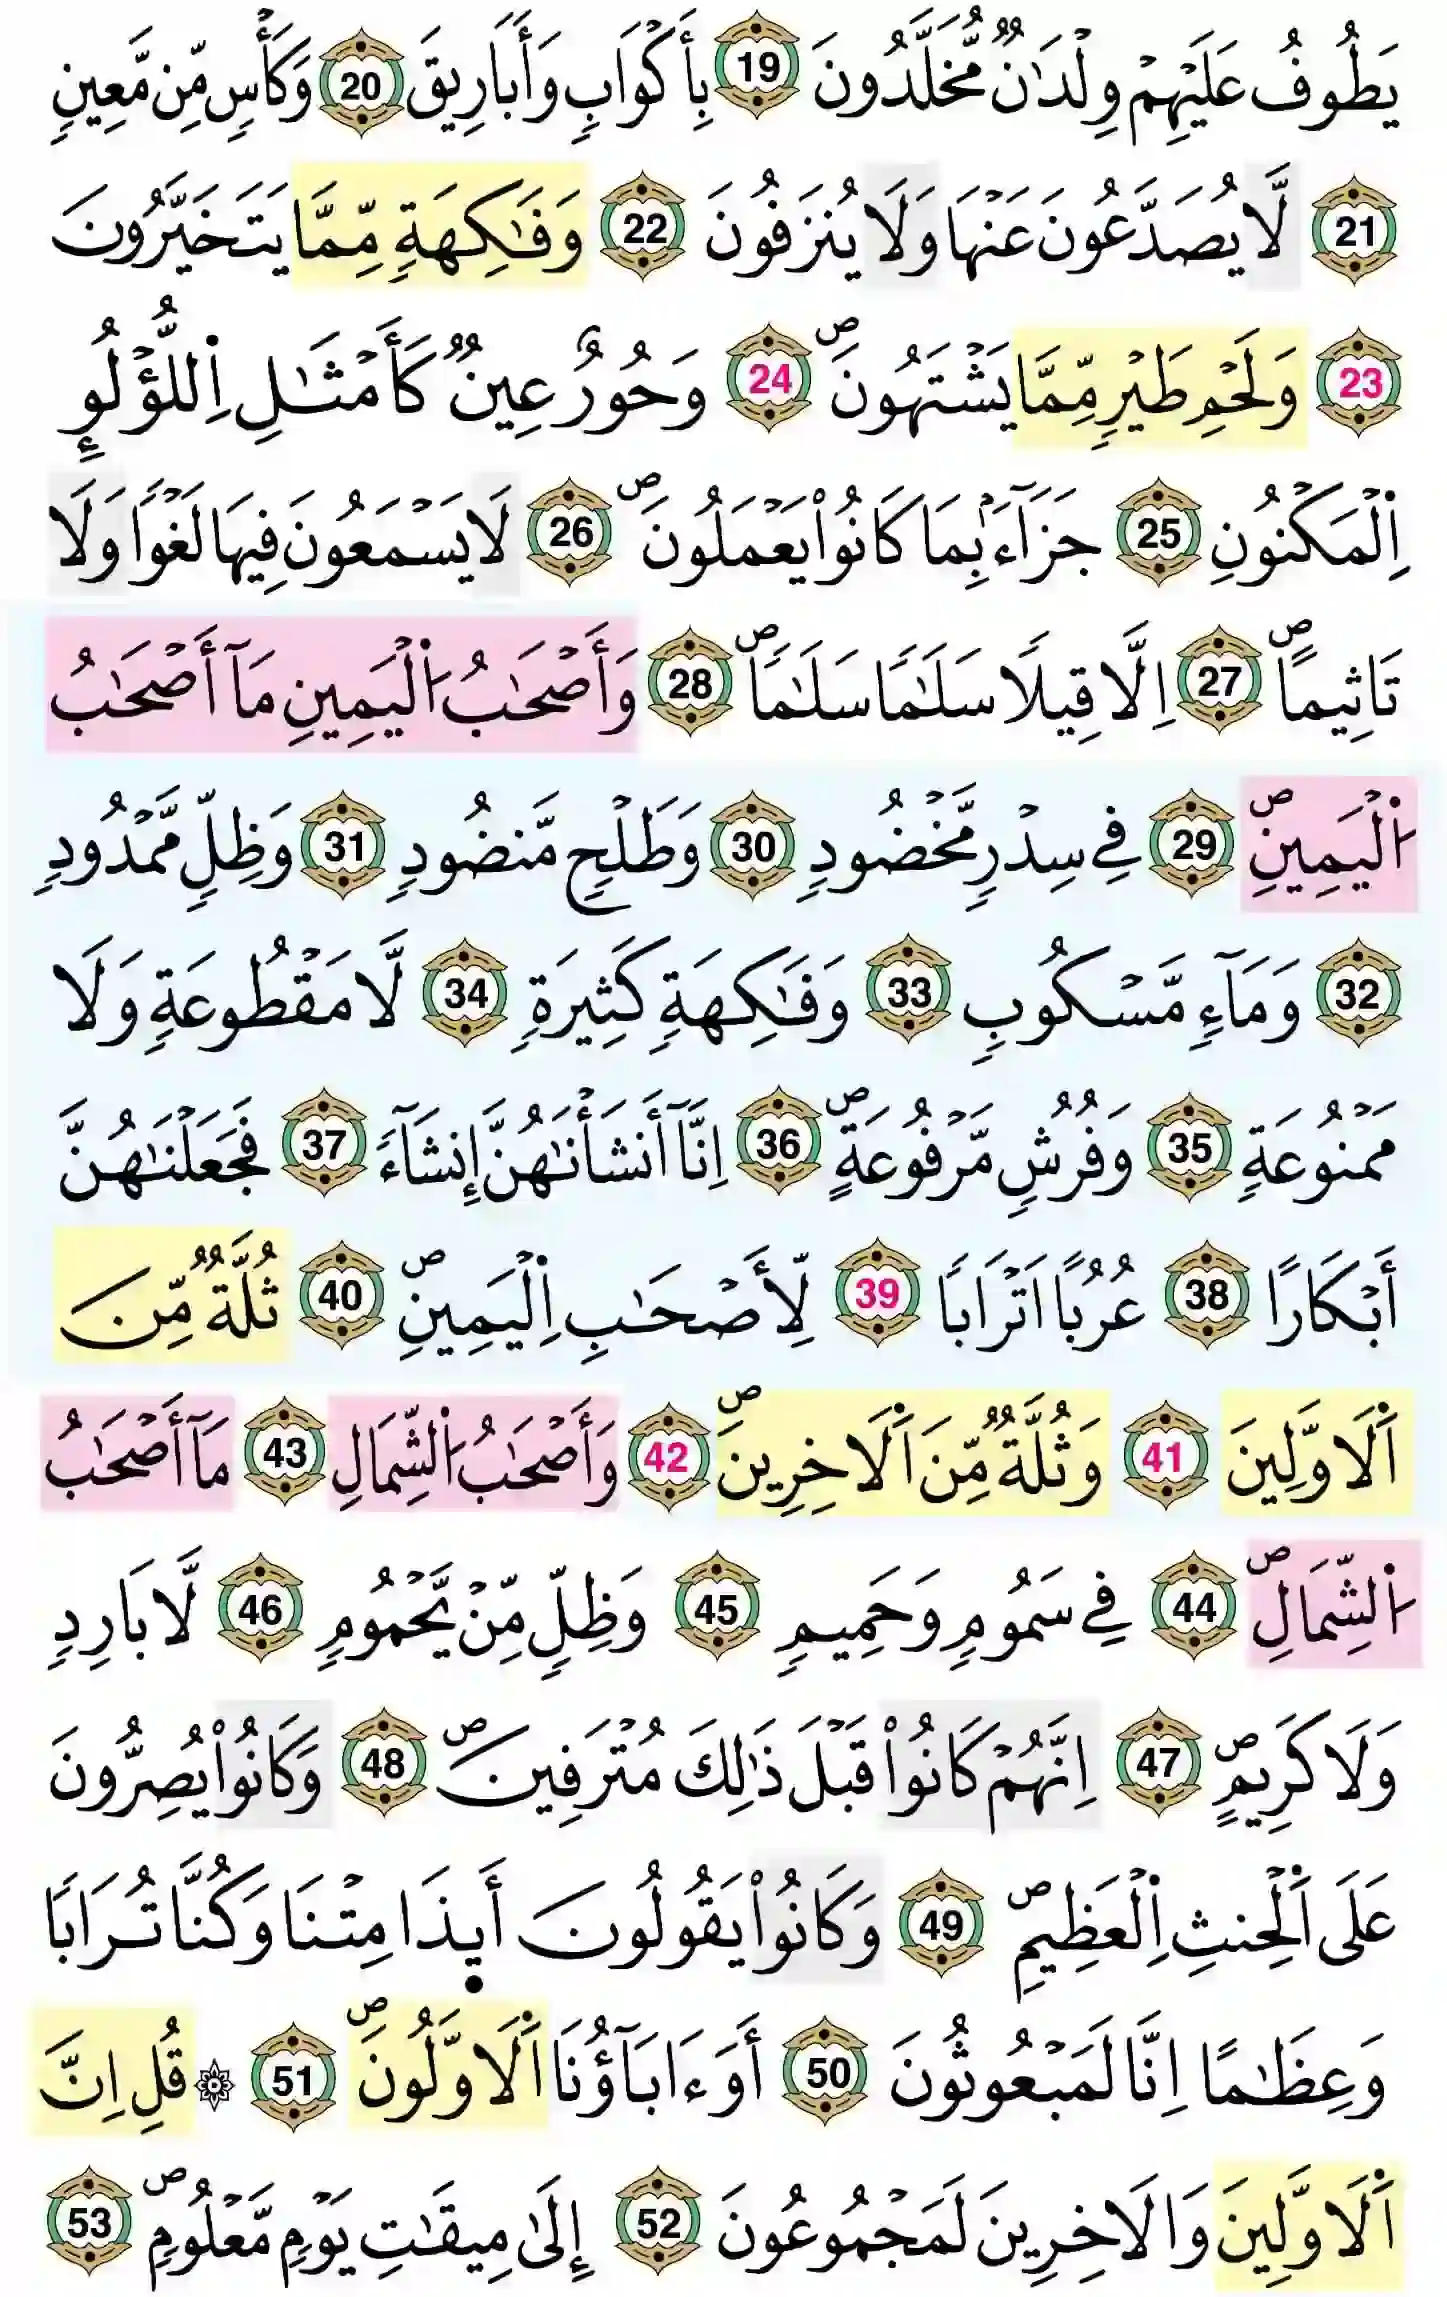 يَطُوفُ عَلَيْهِمْ وِلْدَٰنٞ مُّخَلَّدُونَ 19 بِأَكْوَابٖ وَأَبَارِيقَ 20 وَكَأْسٖ مِّن مَّعِينٖ
21 لَّا يُصَدَّعُونَ عَنْهَا وَلَا يُنزَفُونَ 22 وَفَٰكِهَةٖ مِّمَّا يَتَخَيَّرُونَ
23 وَلَحْمِ طَيْرٖ مِّمَّا يَشْتَهُونَۖ 24 وَحُورٌ عِينٞ كَأَمْثَٰلِ اِ۬للُّؤْلُوِٕ
اِ۬لْمَكْنُونِ 25 جَزَآءَۢ بِمَا كَانُواْ يَعْمَلُونَۖ 26 لَا يَسْمَعُونَ فِيهَا لَغْواٗ وَلَا
تَاثِيماٗۖ 27 اِلَّا قِيلاٗ سَلَٰماٗ سَلَٰماٗۖ 28 وَأَصْحَٰبُ اُ۬لْيَمِينِ مَآ أَصْحَٰبُ
اُ۬لْيَمِينِۖ 29 فِے سِدْرٖ مَّخْضُودٖ 30 وَطَلْحٖ مَّنضُودٖ 31 وَظِلّٖ مَّمْدُودٖ
32 وَمَآءٖ مَّسْكُوبٖ 33 وَفَٰكِهَةٖ كَثِيرَةٖ 34 لَّا مَقْطُوعَةٖ وَلَا
مَمْنُوعَةٖ 35 وَفُرُشٖ مَّرْفُوعَةٍۖ 36 اِنَّآ أَنشَأْنَٰهُنَّ إِنشَآءَٗ 37 فَجَعَلْنَٰهُنَّ
أَبْكَاراً 38 عُرُباً اَتْرَاباٗ 39 لِّأَصْحَٰبِ اِ۬لْيَمِينِۖ 40 ثُلَّةٞ مِّنَ
اَ۬لَاوَّلِينَ 41 وَثُلَّةٞ مِّنَ اَ۬لَاخِرِينَۖ 42 وَأَصْحَٰبُ اُ۬لشِّمَالِ 43 مَآ أَصْحَٰبُ
اُ۬لشِّمَالِۖ 44 فِے سَمُومٖ وَحَمِيمٖ 45 وَظِلّٖ مِّنْ يَّحْمُومٖ 46 لَّا بَارِدٖ
وَلَا كَرِيمٍۖ 47 اِنَّهُمْ كَانُواْ قَبْلَ ذَٰلِكَ مُتْرَفِينَۖ 48 وَكَانُواْ يُصِرُّونَ
عَلَى اَ۬لْحِنثِ اِ۬لْعَظِيمِۖ 49 وَكَانُواْ يَقُولُونَ أَيِٕذَا مِتْنَا وَكُنَّا تُرَاباٗ
وَعِظَٰماً اِنَّا لَمَبْعُوثُونَ 50 أَوَءَابَآؤُنَا اَ۬لَاوَّلُونَۖ 51 ۞ قُلِ اِنَّ
اَ۬لَاوَّلِينَ وَالَاخِرِينَ لَمَجْمُوعُونَ 52 إِلَىٰ مِيقَٰتِ يَوْمٖ مَّعْلُومٖۖ 53